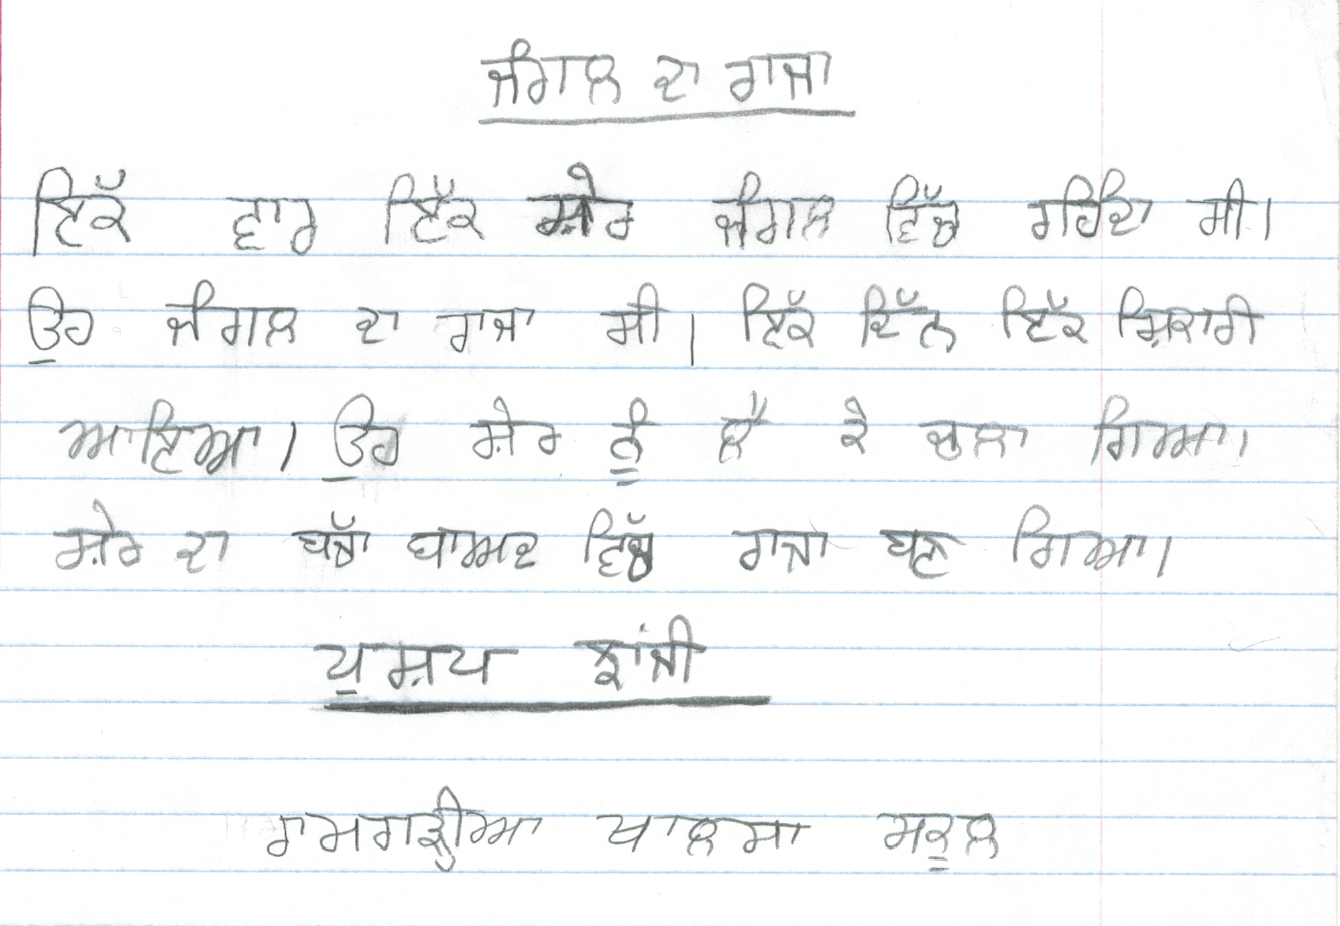 ਜੰਗਲ ਦਾ ਰਾਜਾ
ਇੱਕ ਵਾਰ ਇੱਕ ਸ਼ੇਰ ਜੰਗਲ ਵਿੱਚ ਰਹਿੰਦਾ ਸੀ।
ਉਹ ਜੰਗਲ ਦਾ ਰਾਜਾ ਸੀ। ਇੱਕ ਦਿੱਨ ਇੱਕ ਸ਼ਿਕਾਰੀ
ਆਇਆ। ਉਹ ਸ਼ੇਰ ਨੂੰ ਲੈ ਕੇ ਚਲਾ ਗਿਆ।
ਸ਼ੇਰ ਦਾ ਬੱਚਾ ਬਾਅਦ ਵਿੱਚ ਰਾਜਾ ਬਣ ਗਿਆ।
ਰਾਮਗੜ੍ਹੀਆ ਖਾਲਸਾ ਸਕੂਲ